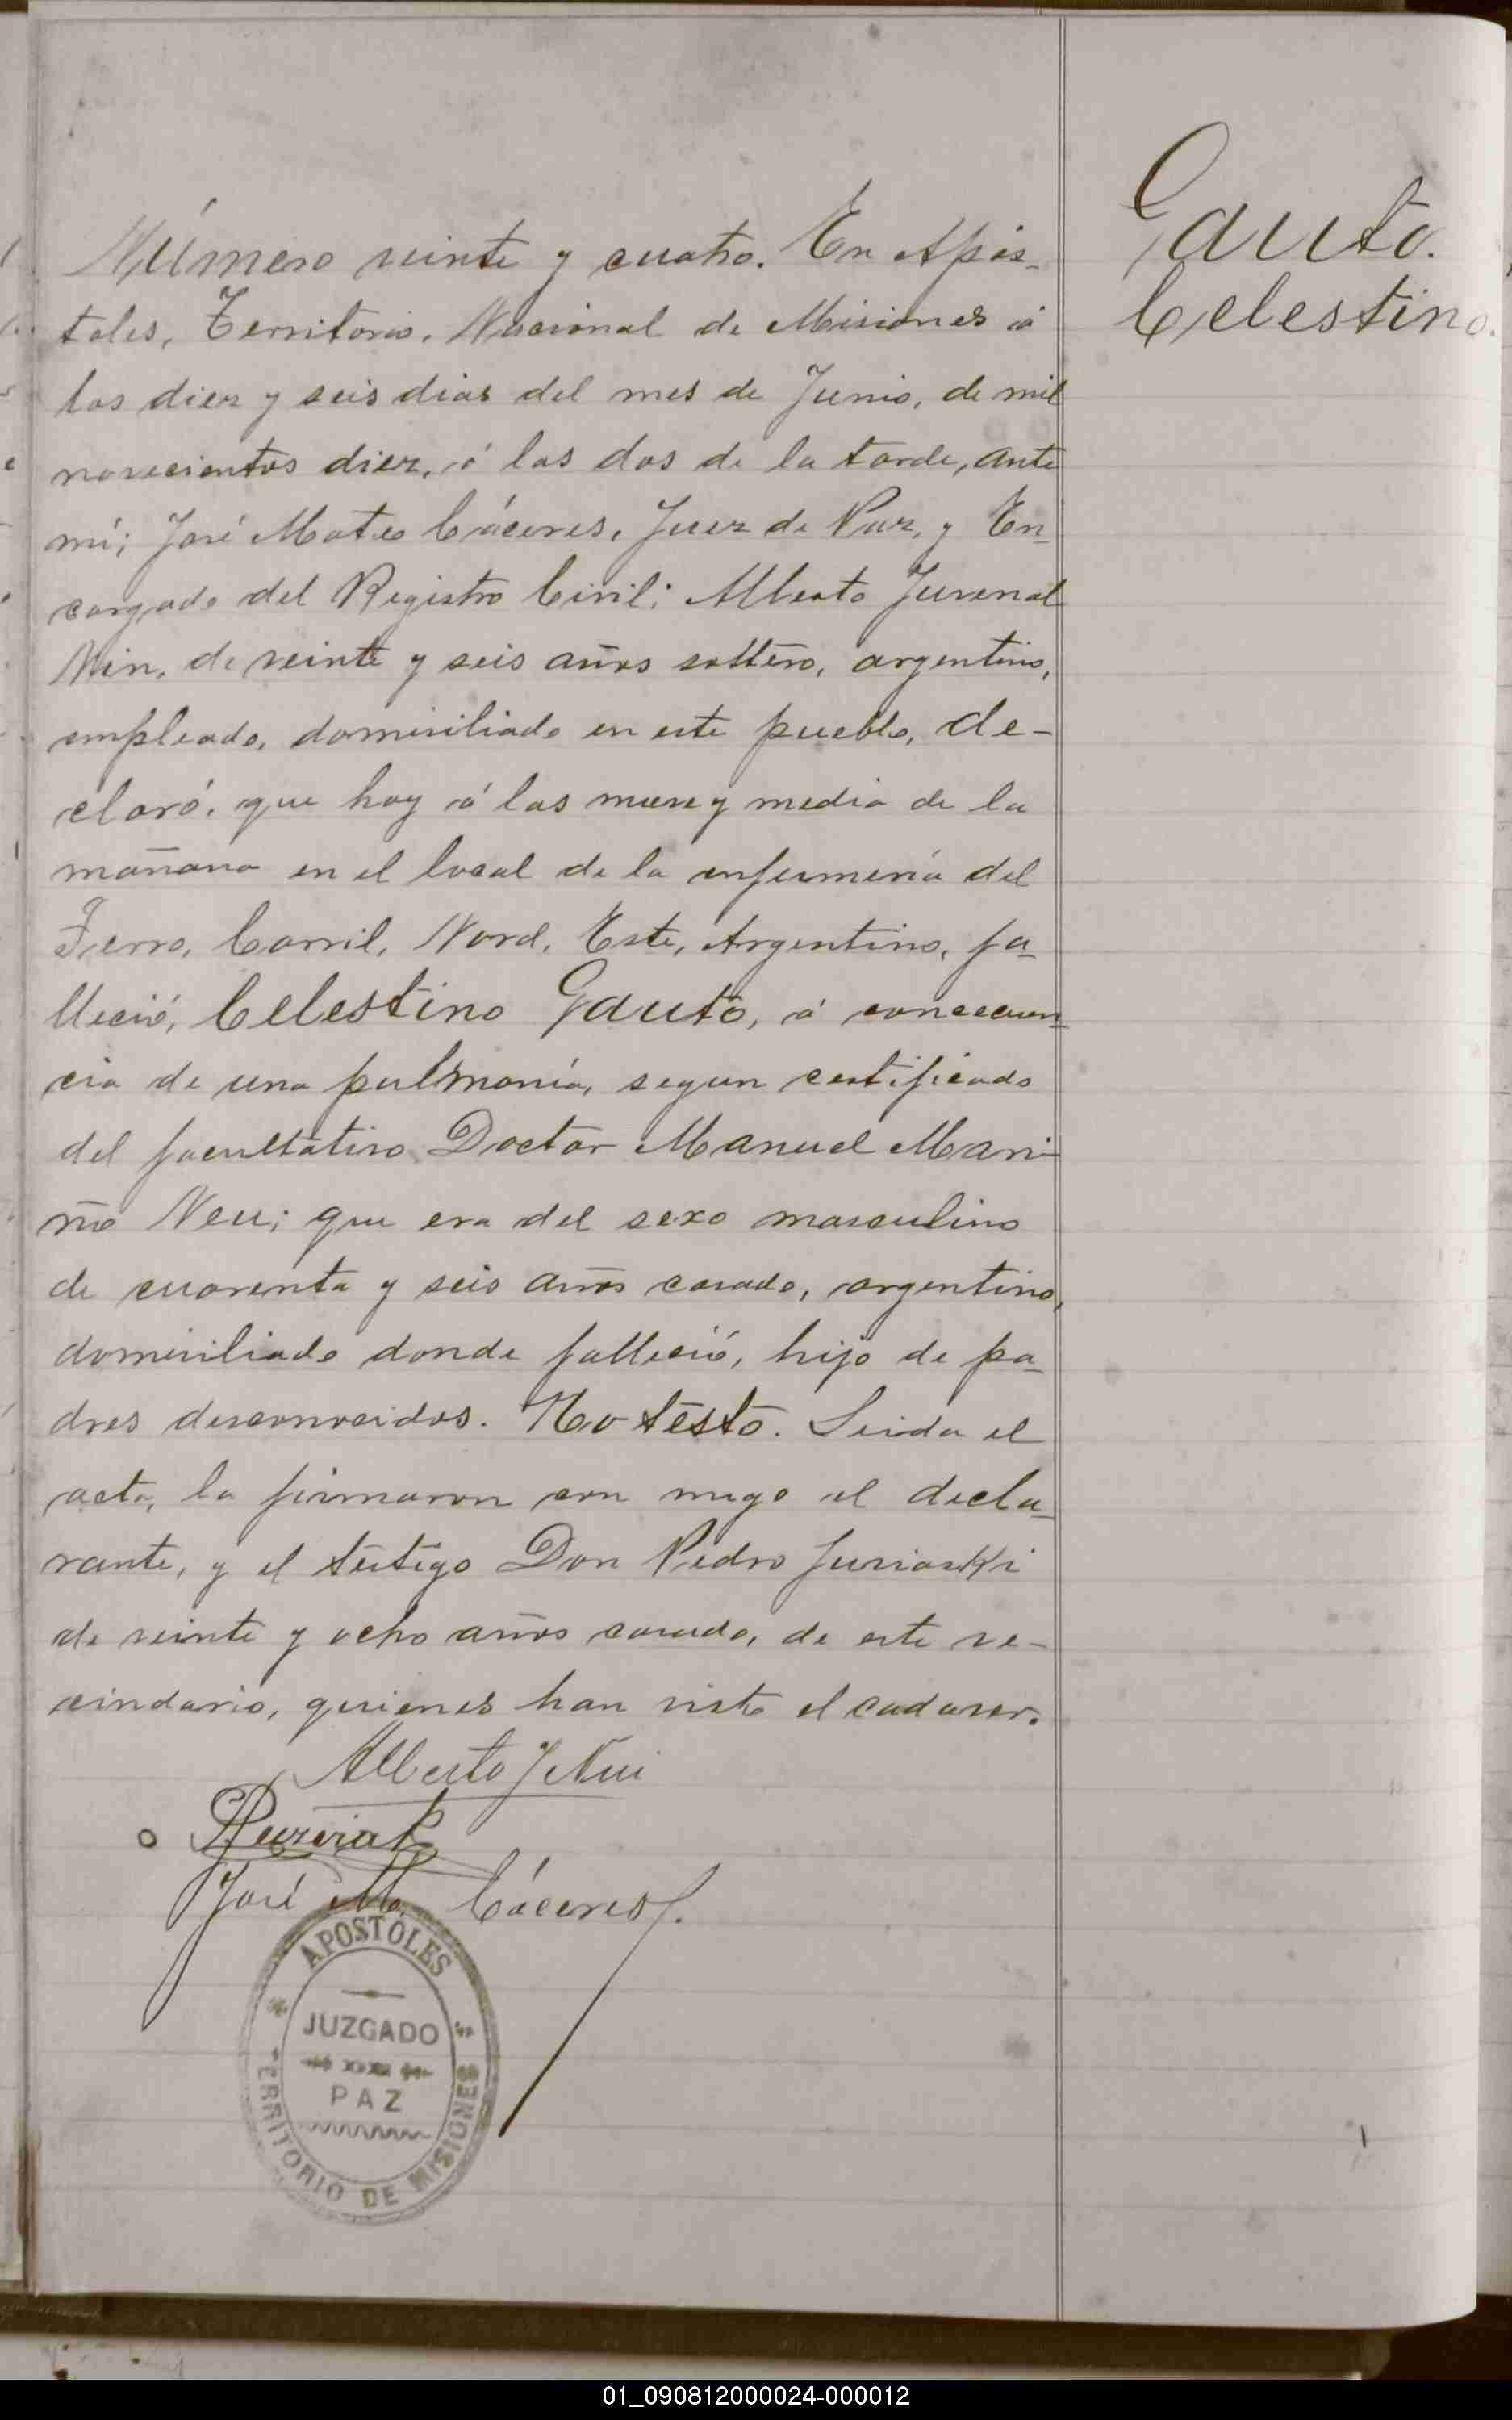 Gauto.
Celestino.
Número veinte y cuatro. En Após-
toles, Territorio, Nacional de Misiones á
los diez y seis dias del mes de Junio, de mil
novecientos diez, á las dos de la tarde, ante
mí; José Mateo Cáceres, Juez de Paz, y En-
cargado del Registro Civil; Alberto Juvenal
Nin, de veinte y seis años soltero, argentino,
empleado, domiciliado en este pueblo, de-
claró, que hoy á las nueve y media de la
mañana en el local de la enfermería del
Ferro, Carril, Nord, Este, Argentino, fa-
lleció, Celestino Gauto, á concecuen-
cia de una pulmonía, segun certificado
del facultativo Doctor Manuel Mari-
ño Neu; que era del sexo masculino
de cuarenta y seis años casado, argentino,
domiciliado donde falleció, hijo de pa-
dres desconocidos. No testó. Leida el
acta, la firmaron con migo el decla-
rante, y el testigo Don Pedro
de veinte y ocho años casado, de este ve-
cindario, quienes han visto el cadaver.
Alberto J Nin
José M. Cáceres
APOSTOLES
JUZGADO
PAZ
TERRITORIO DE MISIONES
01_090812000024-000012